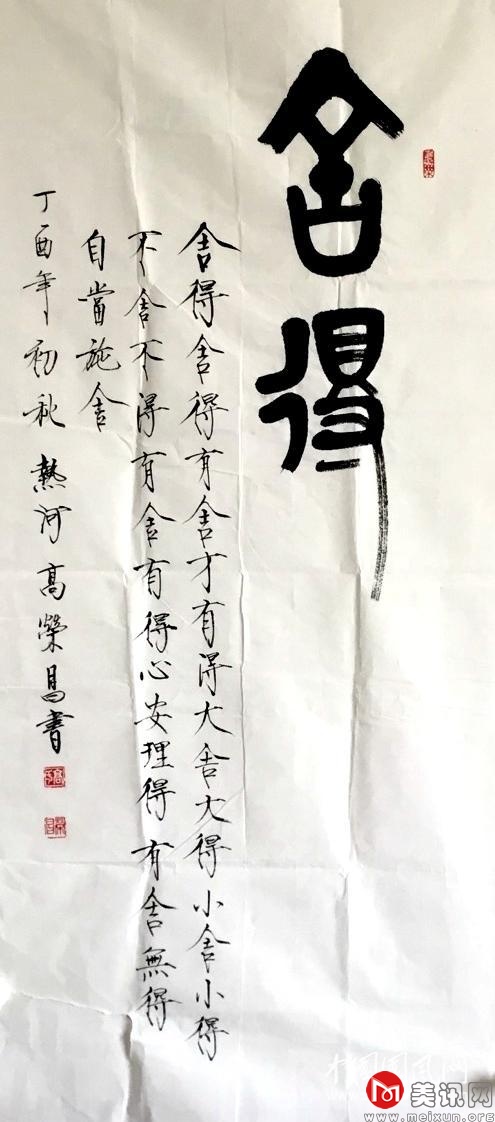 舍得
舍得舍得有舍才有得大舍大得小舍小得
不舍不得有舍有得心安理得有舍無得
自當施舍
丁酉年初秋 熱河高榮昌書
美讯网
www.meixun.org